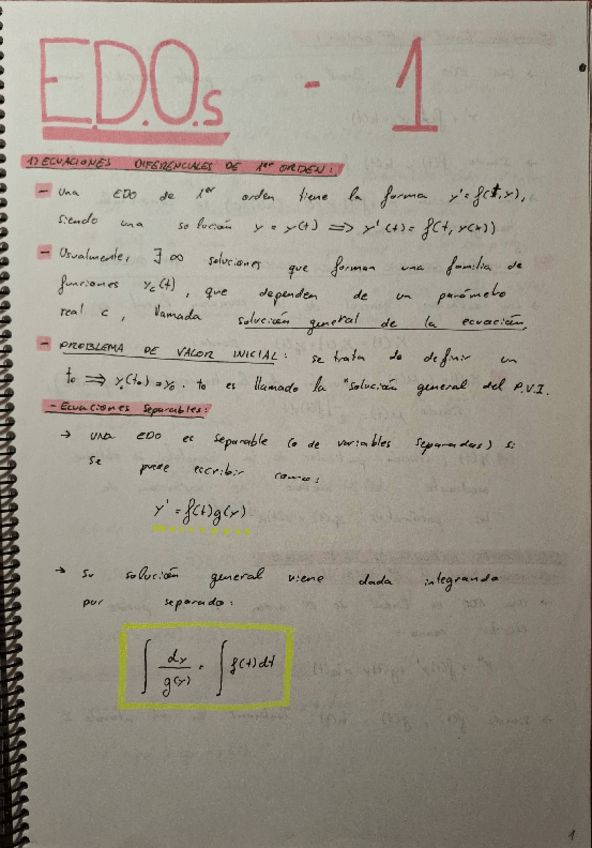 E.D.O.s - 1
1) ECUACIONES DIFERENCIALES DE 1er ORDEN:
- Una EDO de 1er orden tiene la forma y' = f(t,y),
siendo una solución y = y(t) ⟹ y'(t) = f(t, y(t))
- Usualmente, ∃ ∞ soluciones que forman una familia de
funciones yc(t), que dependen de un parámetro
real c, llamada solución general de la ecuación.
- PROBLEMA DE VALOR INICIAL: se trata de definir un
t₀ ⟹ y(t₀) = y₀. t₀ es llamado la "solución general del P.V.I.
- Ecuaciones separables:
→ UNA EDO es separable (o de variables separadas) si
se puede escribir como:
y' = f(t)g(y)
→ Su solución general viene dada integrando
por separado:
∫ dy/g(y) = ∫ f(t)dt
1